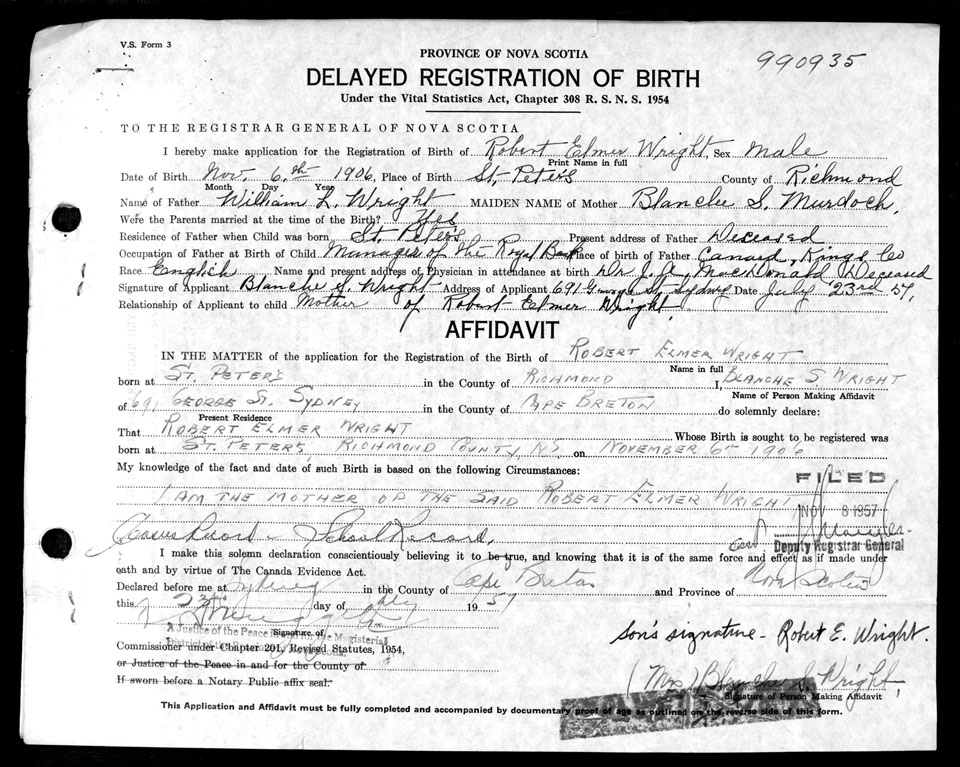 V.S. Form 3
PROVINCE OF NOVA SCOTIA
990935
DELAYED REGISTRATION OF BIRTH
Under the Vital Statistics Act, Chapter 308 R. S. N. S. 1954
TO THE REGISTRAR GENERAL OF NOVA SCOTIA
I hereby make application for the Registration of Birth of Robert Elmer Wright Sex Male
Print Name in full
Date of Birth Nov. 6th 1906, Place of Birth St. Peter's County of Richmond
Month Day Year
Name of Father William L. Wright MAIDEN NAME of Mother Blanche S. Murdoch,
Were the Parents married at the time of the Birth? Yes
Residence of Father when Child was born St. Peter's Present address of Father Deceased
Occupation of Father at Birth of Child Manager of the Royal Bank Place of birth of Father Canard, Kings Co
Race English Name and present address of Physician in attendance at birth Dr. J. A. MacDonald Deceased
Signature of Applicant Blanche S. Wright Address of Applicant 691 George St. Sydney Date July 23rd 57,
Relationship of Applicant to child Mother of Robert Elmer Wright,
AFFIDAVIT
IN THE MATTER of the application for the Registration of the Birth of ROBERT ELMER WRIGHT
Name in full
born at ST. PETER'S in the County of RICHMOND I, BLANCHE S. WRIGHT
Name of Person Making Affidavit
of 691 GEORGE ST. SYDNEY in the County of CAPE BRETON do solemnly declare:
Present Residence
That ROBERT ELMER WRIGHT Whose Birth is sought to be registered was
born at ST. PETERS, RICHMOND COUNTY, NS on NOVEMBER 6TH 1906
My knowledge of the fact and date of such Birth is based on the following Circumstances:
FILED
I AM THE MOTHER OF THE SAID ROBERT ELMER WRIGHT
NOV 8 1957
School Record.
Deputy Registrar General
I make this solemn declaration conscientiously believing it to be true, and knowing that it is of the same force and effect as if made under
oath and by virtue of The Canada Evidence Act.
Declared before me at Sydney in the County of Cape Breton and Province of Nova Scotia
this 23rd day of July 1957
A Justice of the Peace
Signature of
Commissioner under Chapter 201, Revised Statutes, 1954,
or Justice of the Peace in and for the County of
If sworn before a Notary Public affix seal.
son's signature - Robert E. Wright.
(Mrs) Blanche S. Wright,
Signature of Person Making Affidavit
This Application and Affidavit must be fully completed and accompanied by documentary proof of age as outlined on the reverse side of this form.